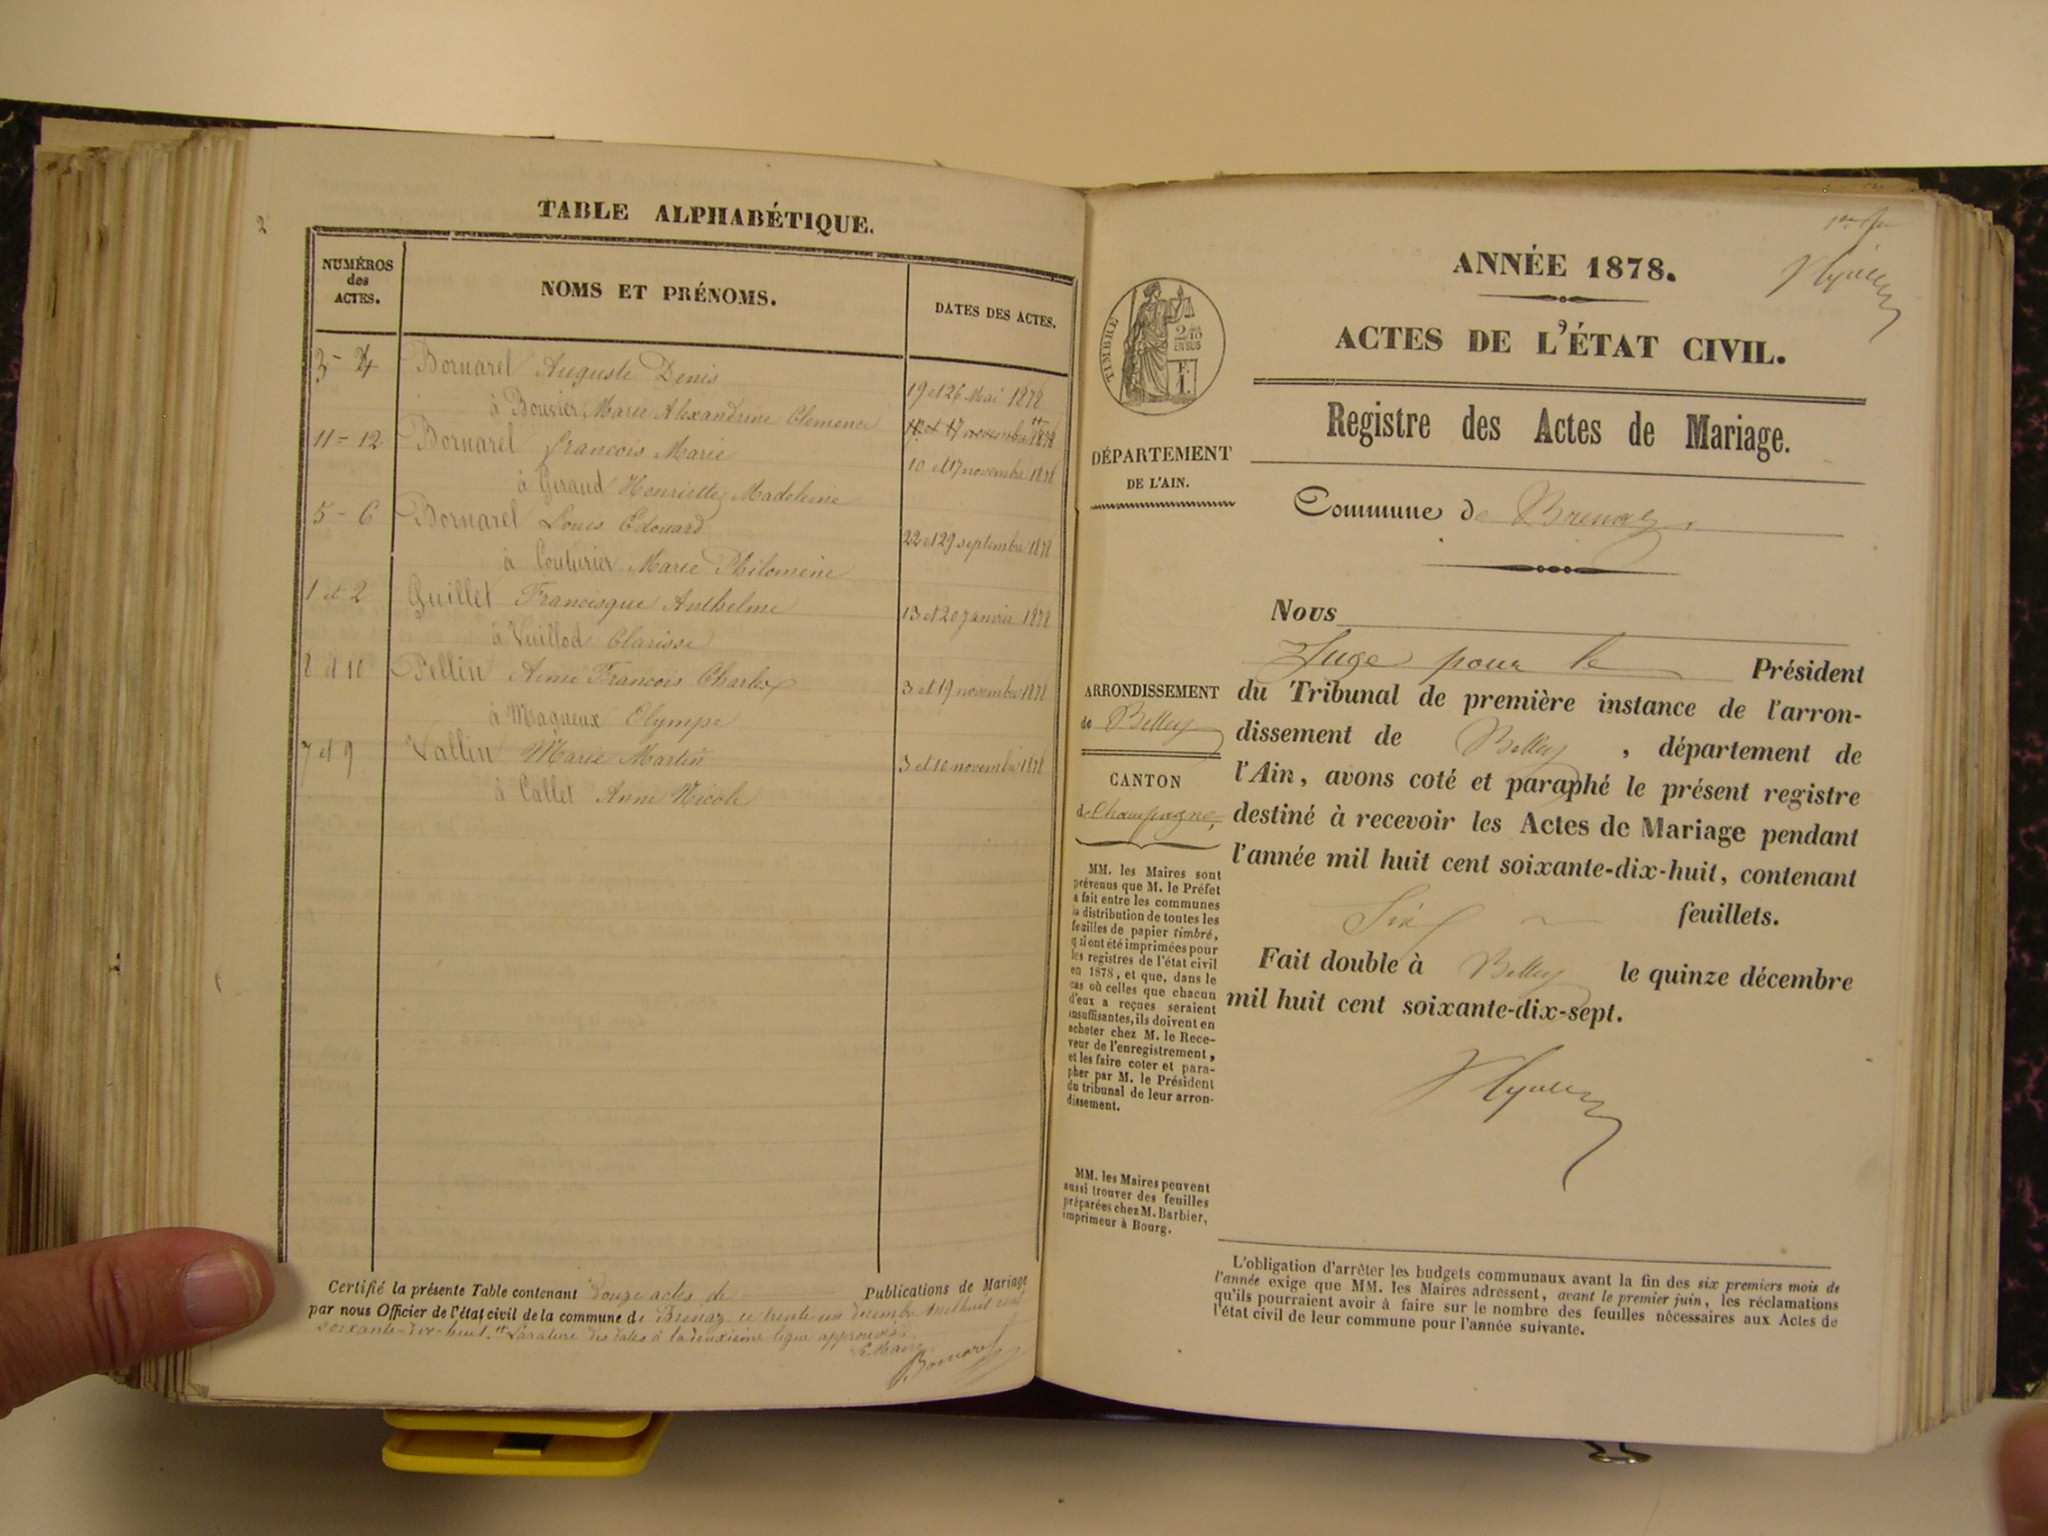 2
TABLE ALPHABÉTIQUE.
NUMÉROS
des
ACTES.
NOMS ET PRÉNOMS.
DATES DES ACTES.
3 - 4 Bornarel Auguste Denis
à Bouvier Marie Alexandrine Clémence 19 et 26 Mai 1878
11 - 12 Bornarel François Marie
à Giraud Henriette Madeleine 10 et 17 novembre 1878
5 - 6 Bornarel Louis Edouard
à Couturier Marie Philomène 22 et 29 septembre 1878
1 et 2 Guillet Francisque Anthelme
à Vuillod Clarisse 13 et 20 janvier 1878
Pellin Aimé François Charles
à Magneux Olympe novembre 1878
7 et 9 Vallin Marie Martin
à Callet Anne Nicole 3 et 10 novembre 1878
Certifié la présente Table contenant douze actes de Publications de Mariage
par nous Officier de l'état civil de la commune de Brénaz ce trente-un décembre mil huit cent
soixante-dix-huit. La rature des dates à la deuxième ligne approuvée.
Le Maire
Bornarel
ANNÉE 1878.
ACTES DE L'ÉTAT CIVIL.
TIMBRE
Registre des Actes de Mariage.
DÉPARTEMENT
DE L'AIN.
Commune de Brenaz
ARRONDISSEMENT
de Belley
CANTON
de Champagne
MM. les Maires sont
prévenus que M. le Préfet
a fait entre les communes
la distribution de toutes les
feuilles de papier timbré,
qui ont été imprimées pour
les registres de l'état civil
en 1878, et que, dans le
cas où celles que chacun
d'eux a reçues seraient
insuffisantes, ils doivent en
acheter chez M. le Rece-
veur de l'enregistrement,
et les faire coter et para-
pher par M. le Président
du tribunal de leur arron-
dissement.
MM. les Maires peuvent
aussi trouver des feuilles
préparées chez M. Barbier,
imprimeur à Bourg.
Nous
Juge pour le Président
du Tribunal de première instance de l'arron-
dissement de Belley, département de
l'Ain, avons coté et paraphé le présent registre
destiné à recevoir les Actes de Mariage pendant
l'année mil huit cent soixante-dix-huit, contenant
Six feuillets.
Fait double à Belley le quinze décembre
mil huit cent soixante-dix-sept.
L'obligation d'arrêter les budgets communaux avant la fin des six premiers mois de
l'année exige que MM. les Maires adressent, avant le premier juin, les réclamations
qu'ils pourraient avoir à faire sur le nombre des feuilles nécessaires aux Actes de
l'état civil de leur commune pour l'année suivante.